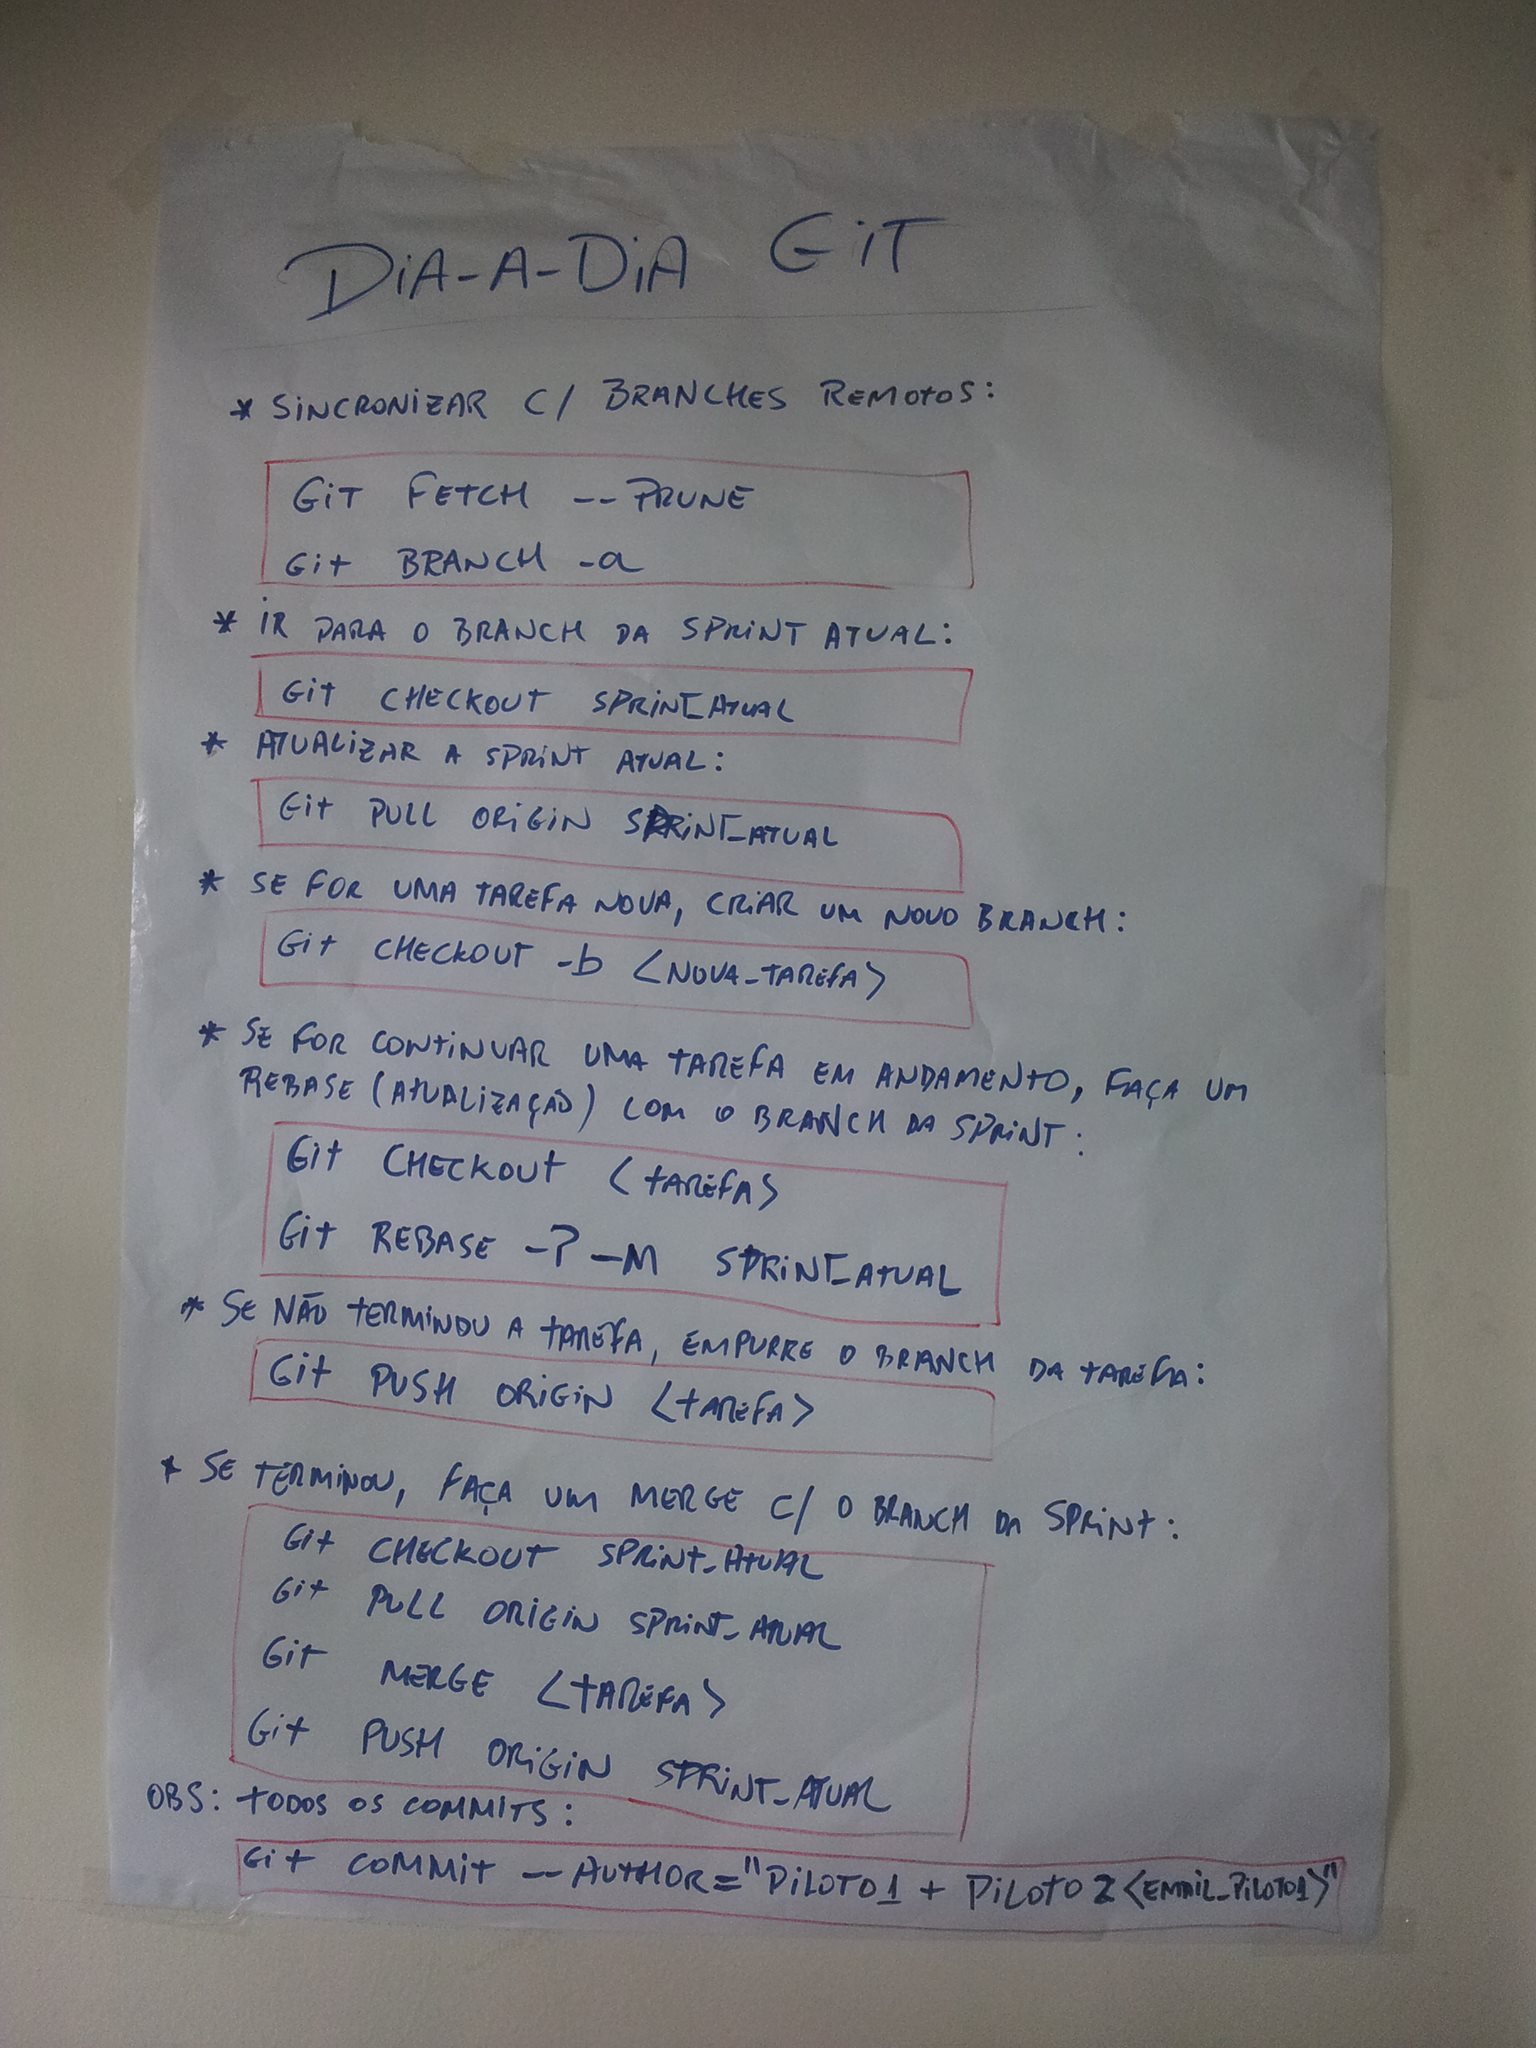 DiA-A-DiA GiT
* SiNCRONiZAR C/ BRANCHES REMOtOS:
GiT FETCH --PRUNE
Git BRANCH -a
* iR PARA O BRANCH DA SPRiNT ATUAL:
Git CHECKOUT SPRiNT_ATUAL
* ATUALiZAR A SPRiNT ATUAL:
Git PULL ORiGiN SPRiNT_ATUAL
* SE FOR UMA TAREFA NOVA, CRiAR UM NOVO BRANCH:
Git CHECKOUT -b <NOVA_TAREFA>
* SE FOR CONTiNUAR UMA TAREFA EM ANDAMENTO, FAÇA UM
REBASE (ATUALIZAÇÃO) COM O BRANCH DA SPRiNT:
Git CHECKOUT <tAREFA>
Git REBASE -P -M SPRiNT_ATUAL
* SE NÃO TERMiNOU A TAREFA, EMPURRE O BRANCH DA TAREFA:
Git PUSH ORiGiN <tAREFA>
* SE TERMiNOU, FAÇA UM MERGE C/ O BRANCH DA SPRiNt:
Git CHECKOUT SPRiNt_ATUAL
Git PULL ORiGiN SPRiNT_ATUAL
Git MERGE <tAREFA>
Git PUSH ORiGiN SPRiNT_ATUAL
OBS: tODOS OS COMMITS:
Git COMMit --AUTHOR="PiLOTO1 + PiLOTO 2 <EMAiL_PiLOTO1>"